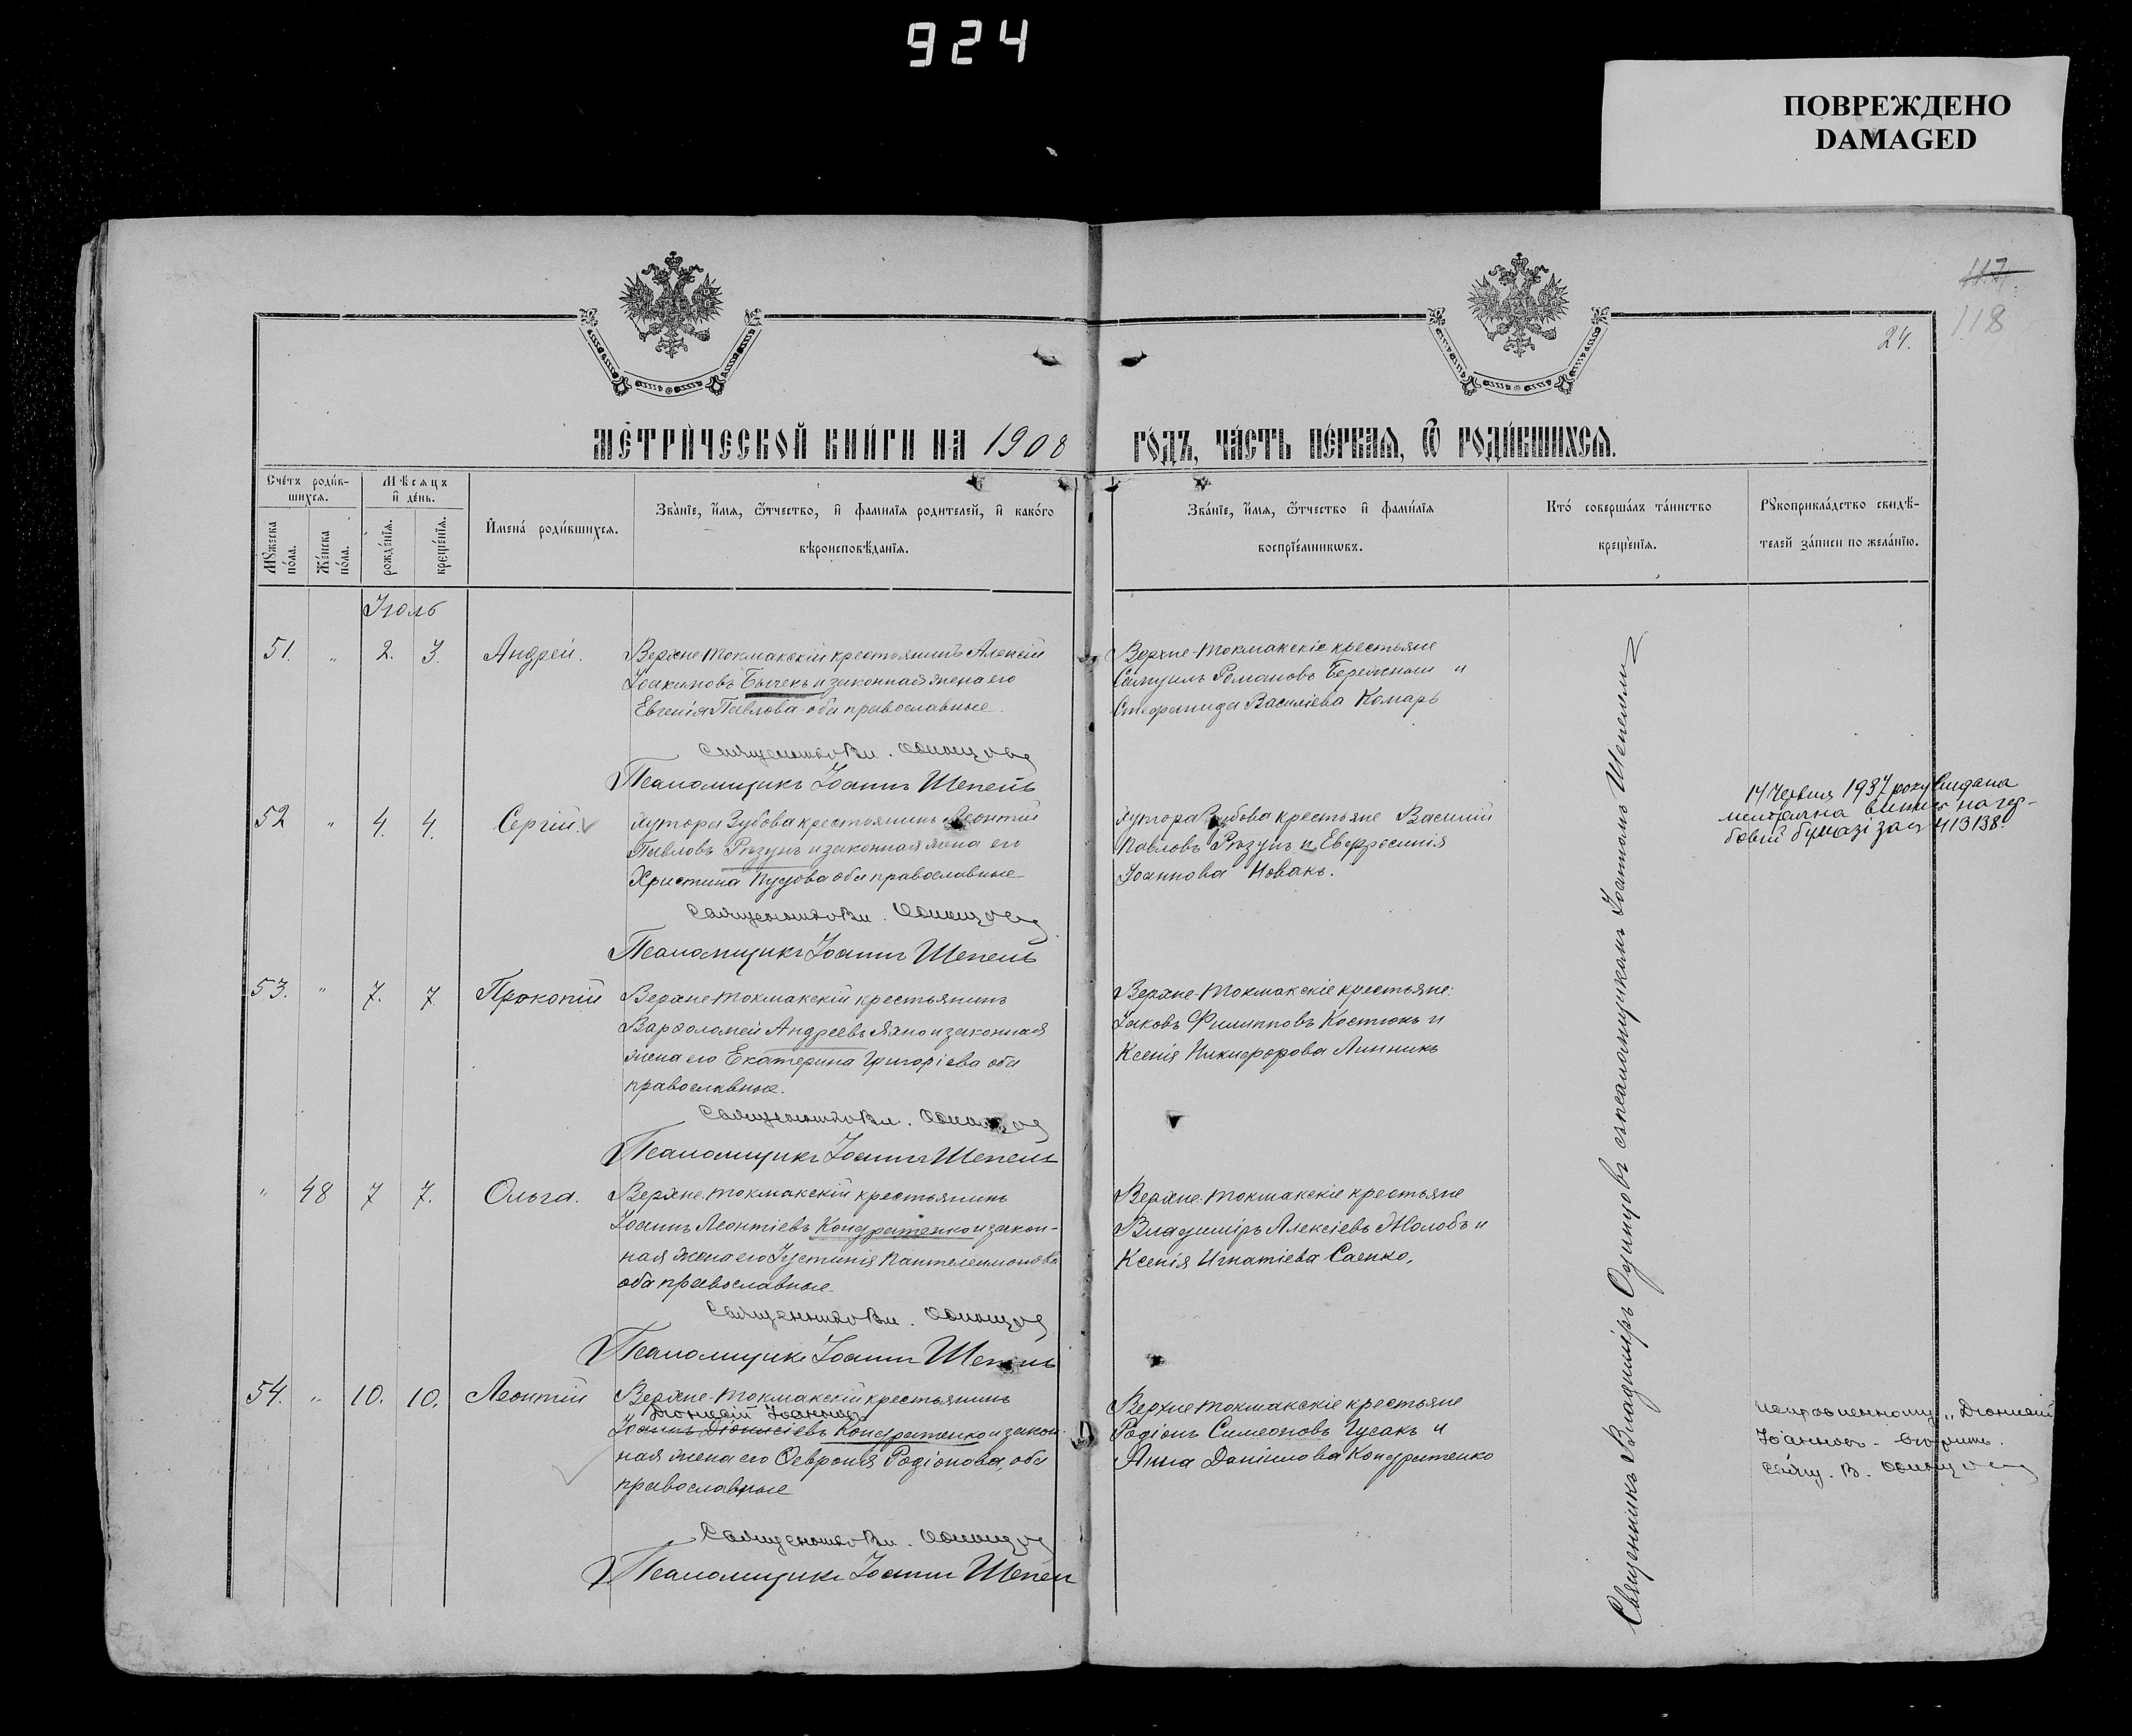 924
ПОВРЕЖДЕНО
DAMAGED
117.
118
24.
МЕТРИЧЕСКОЙ КНИГИ НА 1908
ГОДЪ, ЧАСТЬ ПЕРВАЯ, Ѿ РОДИВШИХСЯ.
Счетъ родив-
шихся.
Мѣсяцъ
и день.
Мужеска
пола.
Женска
пола.
рожденія.
крещенія.
Имена родившихся.
Званіе, имя, ѿтчество, и фамилія родителей, и какого
вѣроисповѣданія.
Званіе, имя, ѿтчество и фамилія
воспріемниковъ.
Кто совершалъ таинство
крещенія.
Рукоприкладство свидѣ-
телей записи по желанію.
Іюль
51. " 2. 3. Андрей.
Верхне-Токмакскій крестьянинъ Алексій
Іоакимовъ Бычекъ и законная жена его
Евгенія Павлова оба православные
Священникъ Вл. Одинцовъ
Псаломщикъ Іоаннъ Шепель
Верхне-Токмакскіе крестьяне
Самуилъ Романовъ Бережный и
Стефанида Василіева Комарь
52 " 4. 4. Сергій
хутора Зубова крестьянинъ Леонтій
Павловъ Рѣзунъ и законная жена его
Христина оба православные
Священникъ Вл. Одинцовъ
Псаломщикъ Іоаннъ Шепель
Хутора Зубова крестьяне Василій
Павловъ Рѣзунъ и Евфросинія
Іоаннова Новакъ.
14 червня 1937 року видана
на гер-
бовій бумазі за № 413138.
53. " 7. 7 Прокопій
Верхне-Токмакскій крестьянинъ
Варѳоломей Андреевъ Яхно и законная
жена его Екатерина Григоріева оба
православные.
Священникъ Вл. Одинцовъ
Псаломщикъ Іоаннъ Шепель
Верхне-Токмакскіе крестьяне:
Іаковъ Филипповъ Костюкъ и
Ксенія Никифорова Линникъ
" 48 7 7. Ольга.
Верхне-Токмакскій крестьянинъ
Іоаннъ Леонтіевъ Кондратенко и закон-
ная жена его Іустинія Пантелеимонова
оба православные
Священникъ Вл. Одинцовъ
Псаломщикъ Іоаннъ Шепель
Верхне-Токмакскіе крестьяне
Владиміръ Алексіевъ Жолобъ и
Ксенія Игнатіева Саенко.
54. " 10. 10. Леонтій
Верхне-Токмакскій крестьянинъ
Діонисій Іоанновъ
Іоаннъ Діонисіевъ Кондратенко и закон-
ная жена его Ѳевронія Родіонова, оба
православные
Священникъ Вл. Одинцовъ
Псаломщикъ Іоаннъ Шепель
Верхне-Токмакскіе крестьяне
Родіонъ Симеоновъ Гусакъ и
Анна Даніилова Кондратенко
"Діонисій
Іоанновъ" - вѣрить.
Свящ. В. Одинцовъ
Священникъ Владиміръ Одинцовъ съ псаломщикомъ Іоанномъ Шепелемъ